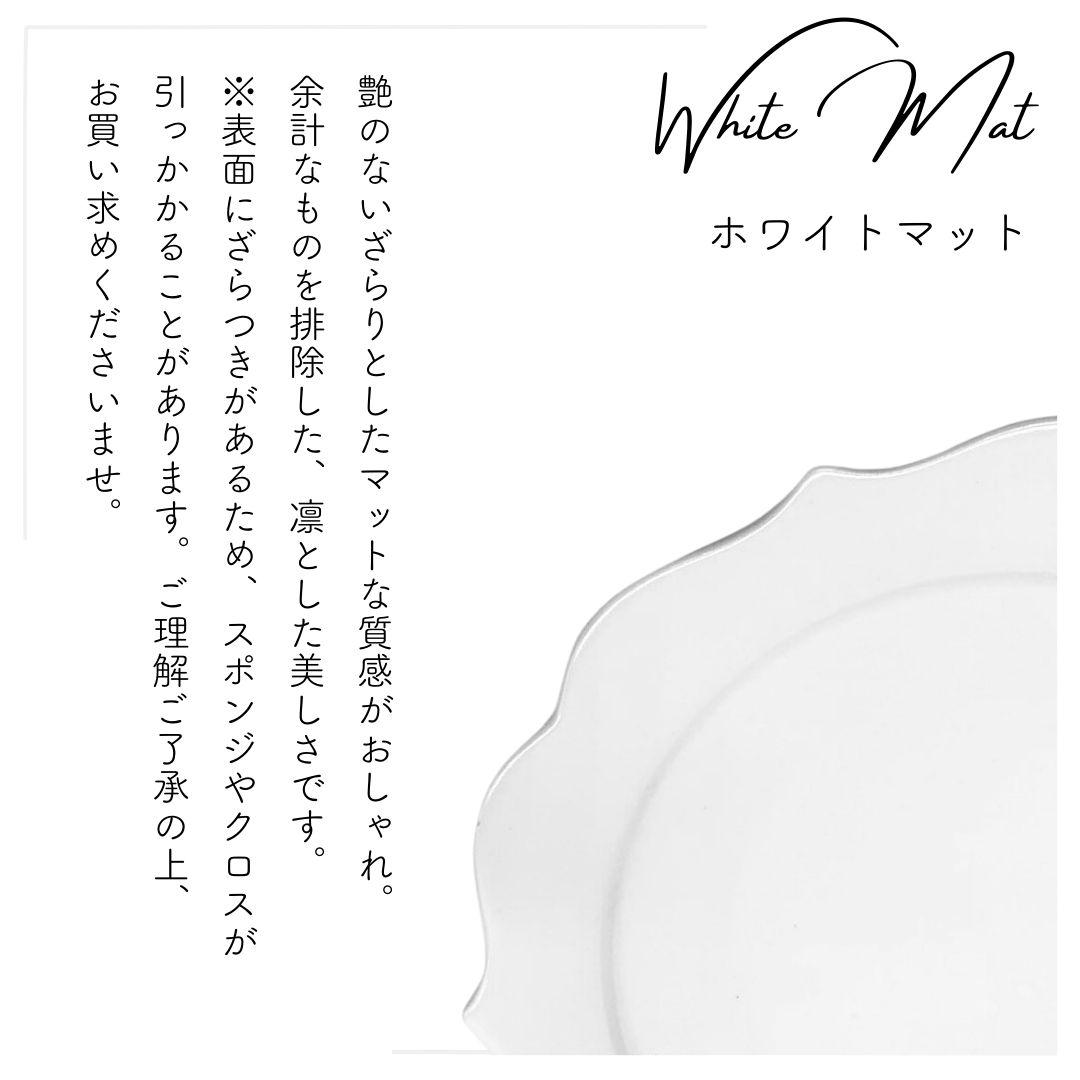 White Mat
ホワイトマット
艶のないざらりとしたマットな質感がおしゃれ。
余計なものを排除した、凛とした美しさです。
※表面にざらつきがあるため、スポンジやクロスが
引っかかることがあります。ご理解ご了承の上、
お買い求めくださいませ。